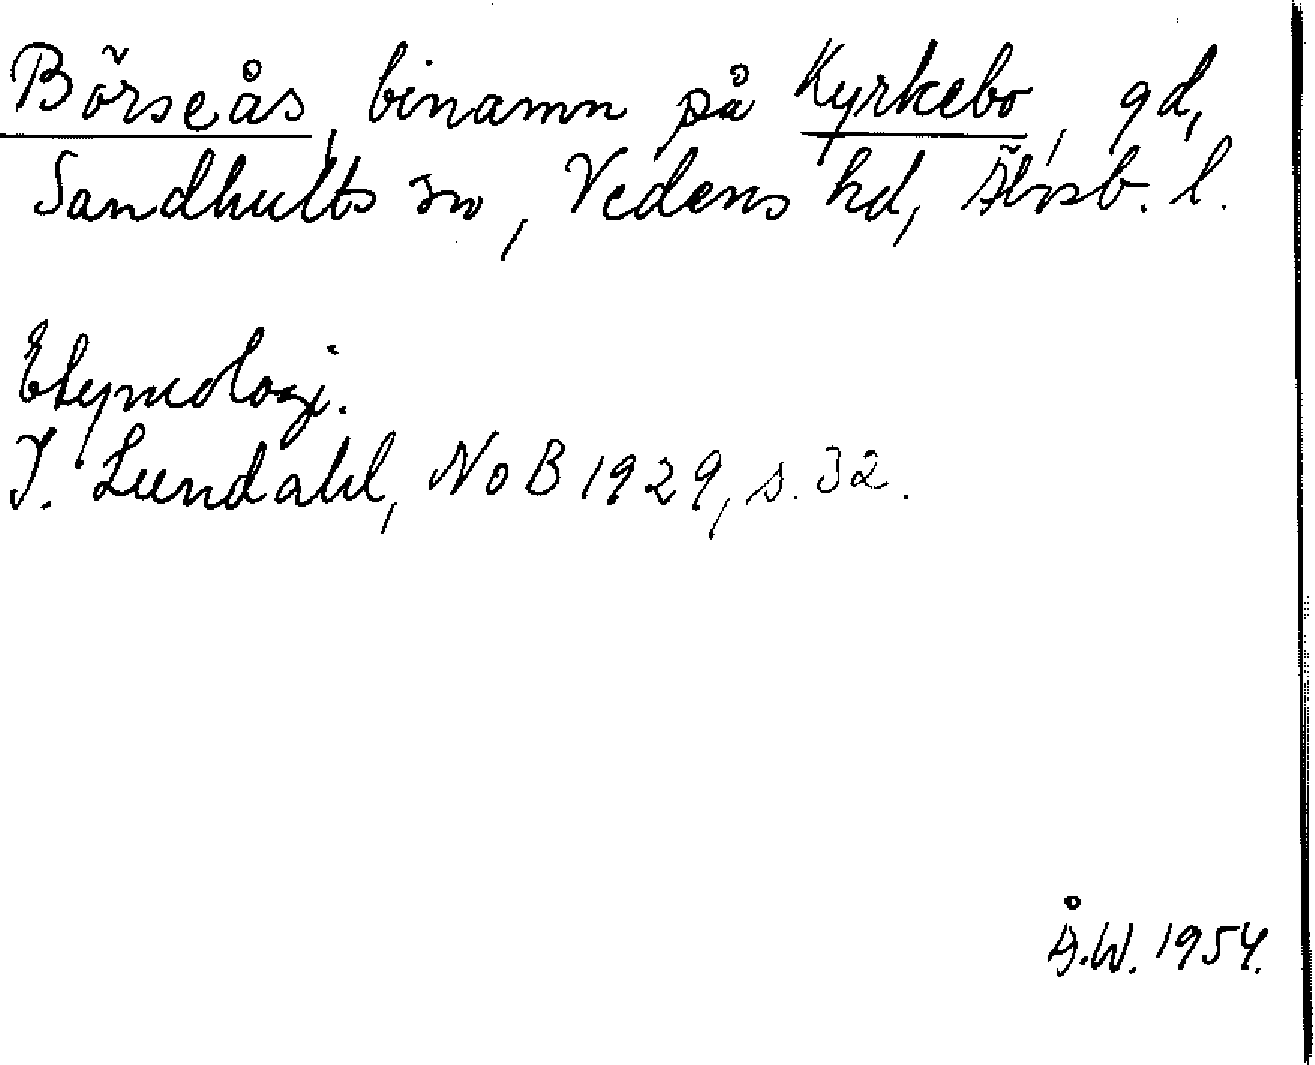 Börseås, binamn på Kyrkebo, gd,
Sandhults sn, Vedens hd, Älvsb. l.
Etymologi.
I. Lundahl, NoB 1929, s. 32.
Å.W. 1954.